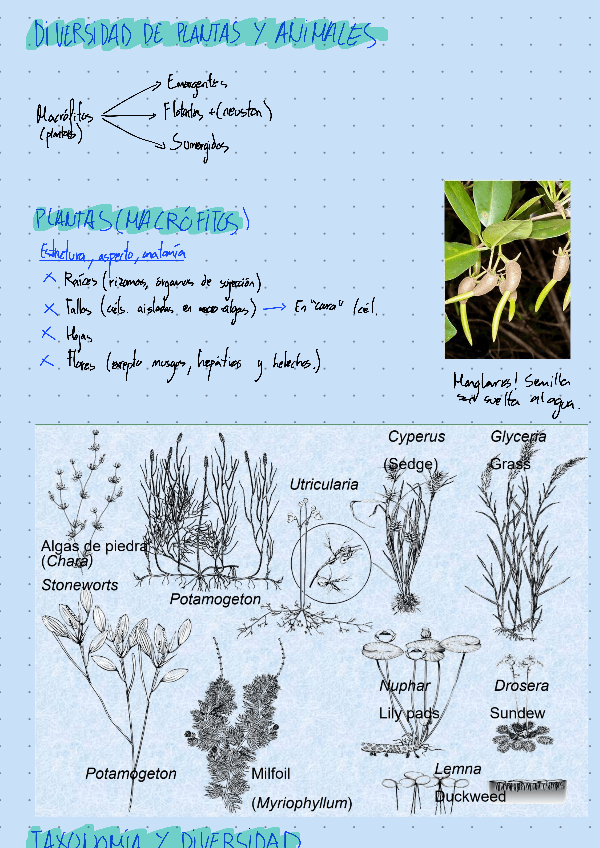 DIVERSIDAD DE PLANTAS Y ANIMALES
Emergentes
Macrófitos
Flotantes + (neuston)
(plantas)
Sumergidos
PLANTAS (MACRÓFITOS)
Estructura, aspecto, anatomía
Raíces (rizomas, órganos de sujeción)
Tallos (céls. aisladas en algas) → En "cara" 1 cél.
Hojas
Flores (excepto musgos, hepáticas y helechos.)
Manglares! Semilla
suelta al agua.
Cyperus
(Sedge)
Glyceria
Grass
Utricularia
Algas de piedra
(Chara)
Stoneworts
Potamogeton
Nuphar
Lily pads
Drosera
Sundew
Potamogeton
Milfoil
(Myriophyllum)
Lemna
Duckweed
TAXONOMÍA Y DIVERSIDAD